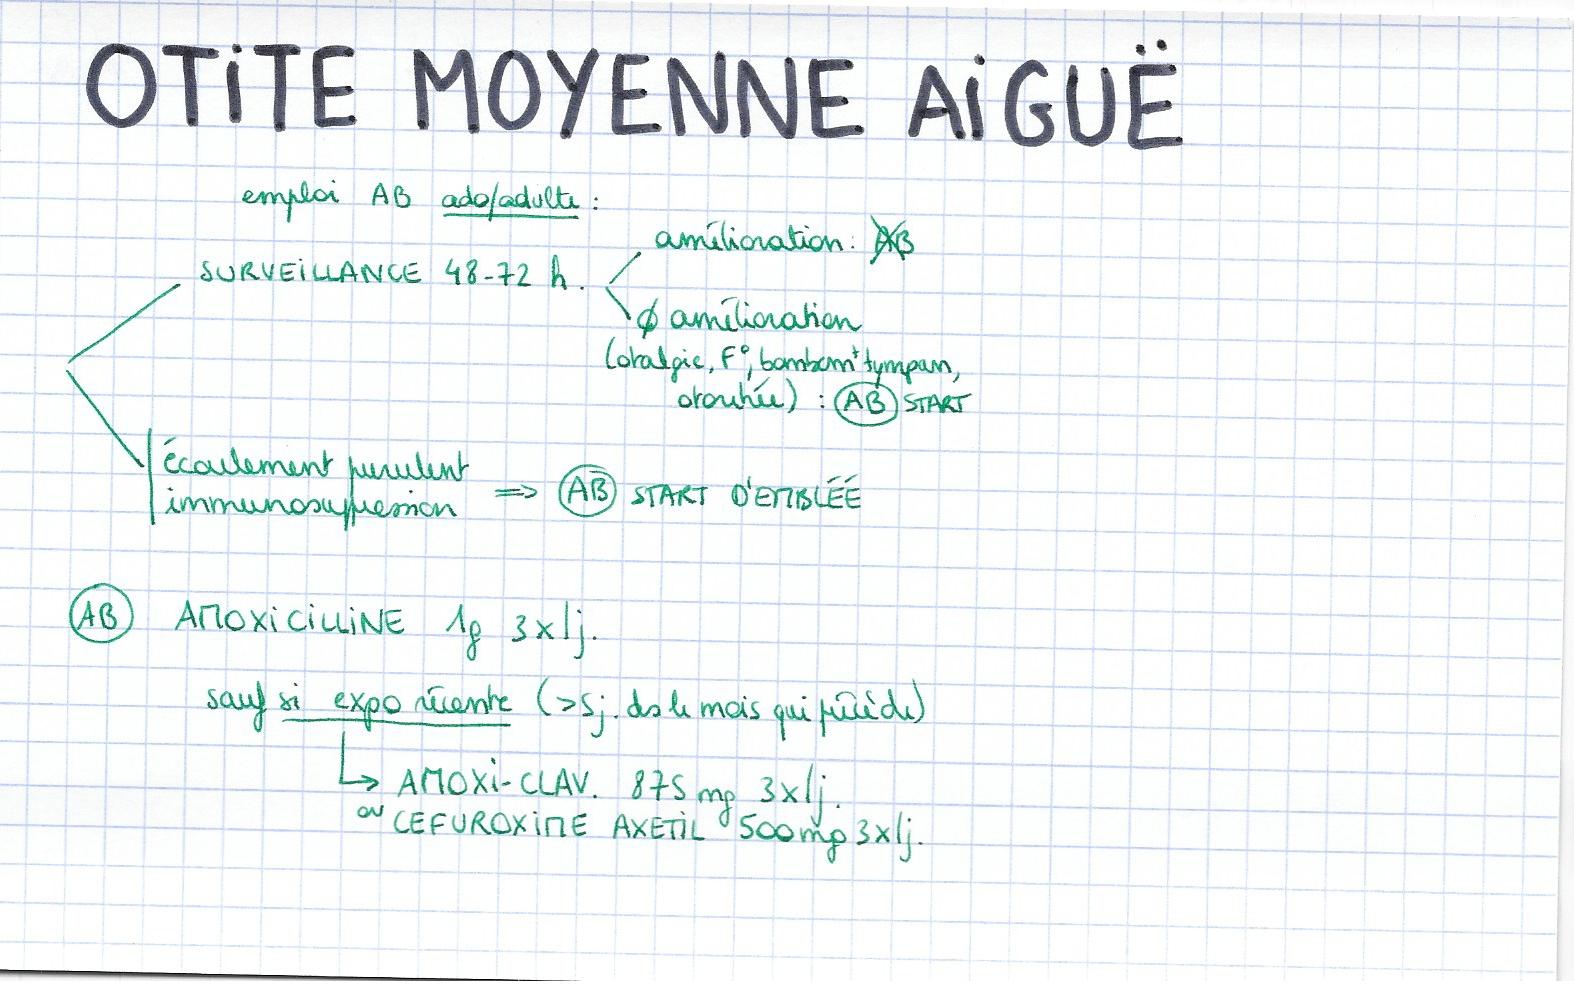 OTITE MOYENNE AIGUË
emploi AB ado/adulte :
amélioration : AB
SURVEILLANCE 48-72 h.
∅ amélioration
(otalgie, F°, bombemt tympan,
otorrhée) : AB START
écoulement purulent
immunosuppression => AB START D'EMBLÉE
AB AMOXICILLINE 1g 3x/j.
sauf si expo récente (>5j. ds le mois qui précède)
↳ AMOXI-CLAV. 875 mg 3x/j.
ou CEFUROXIME AXETIL 500mg 3x/j.